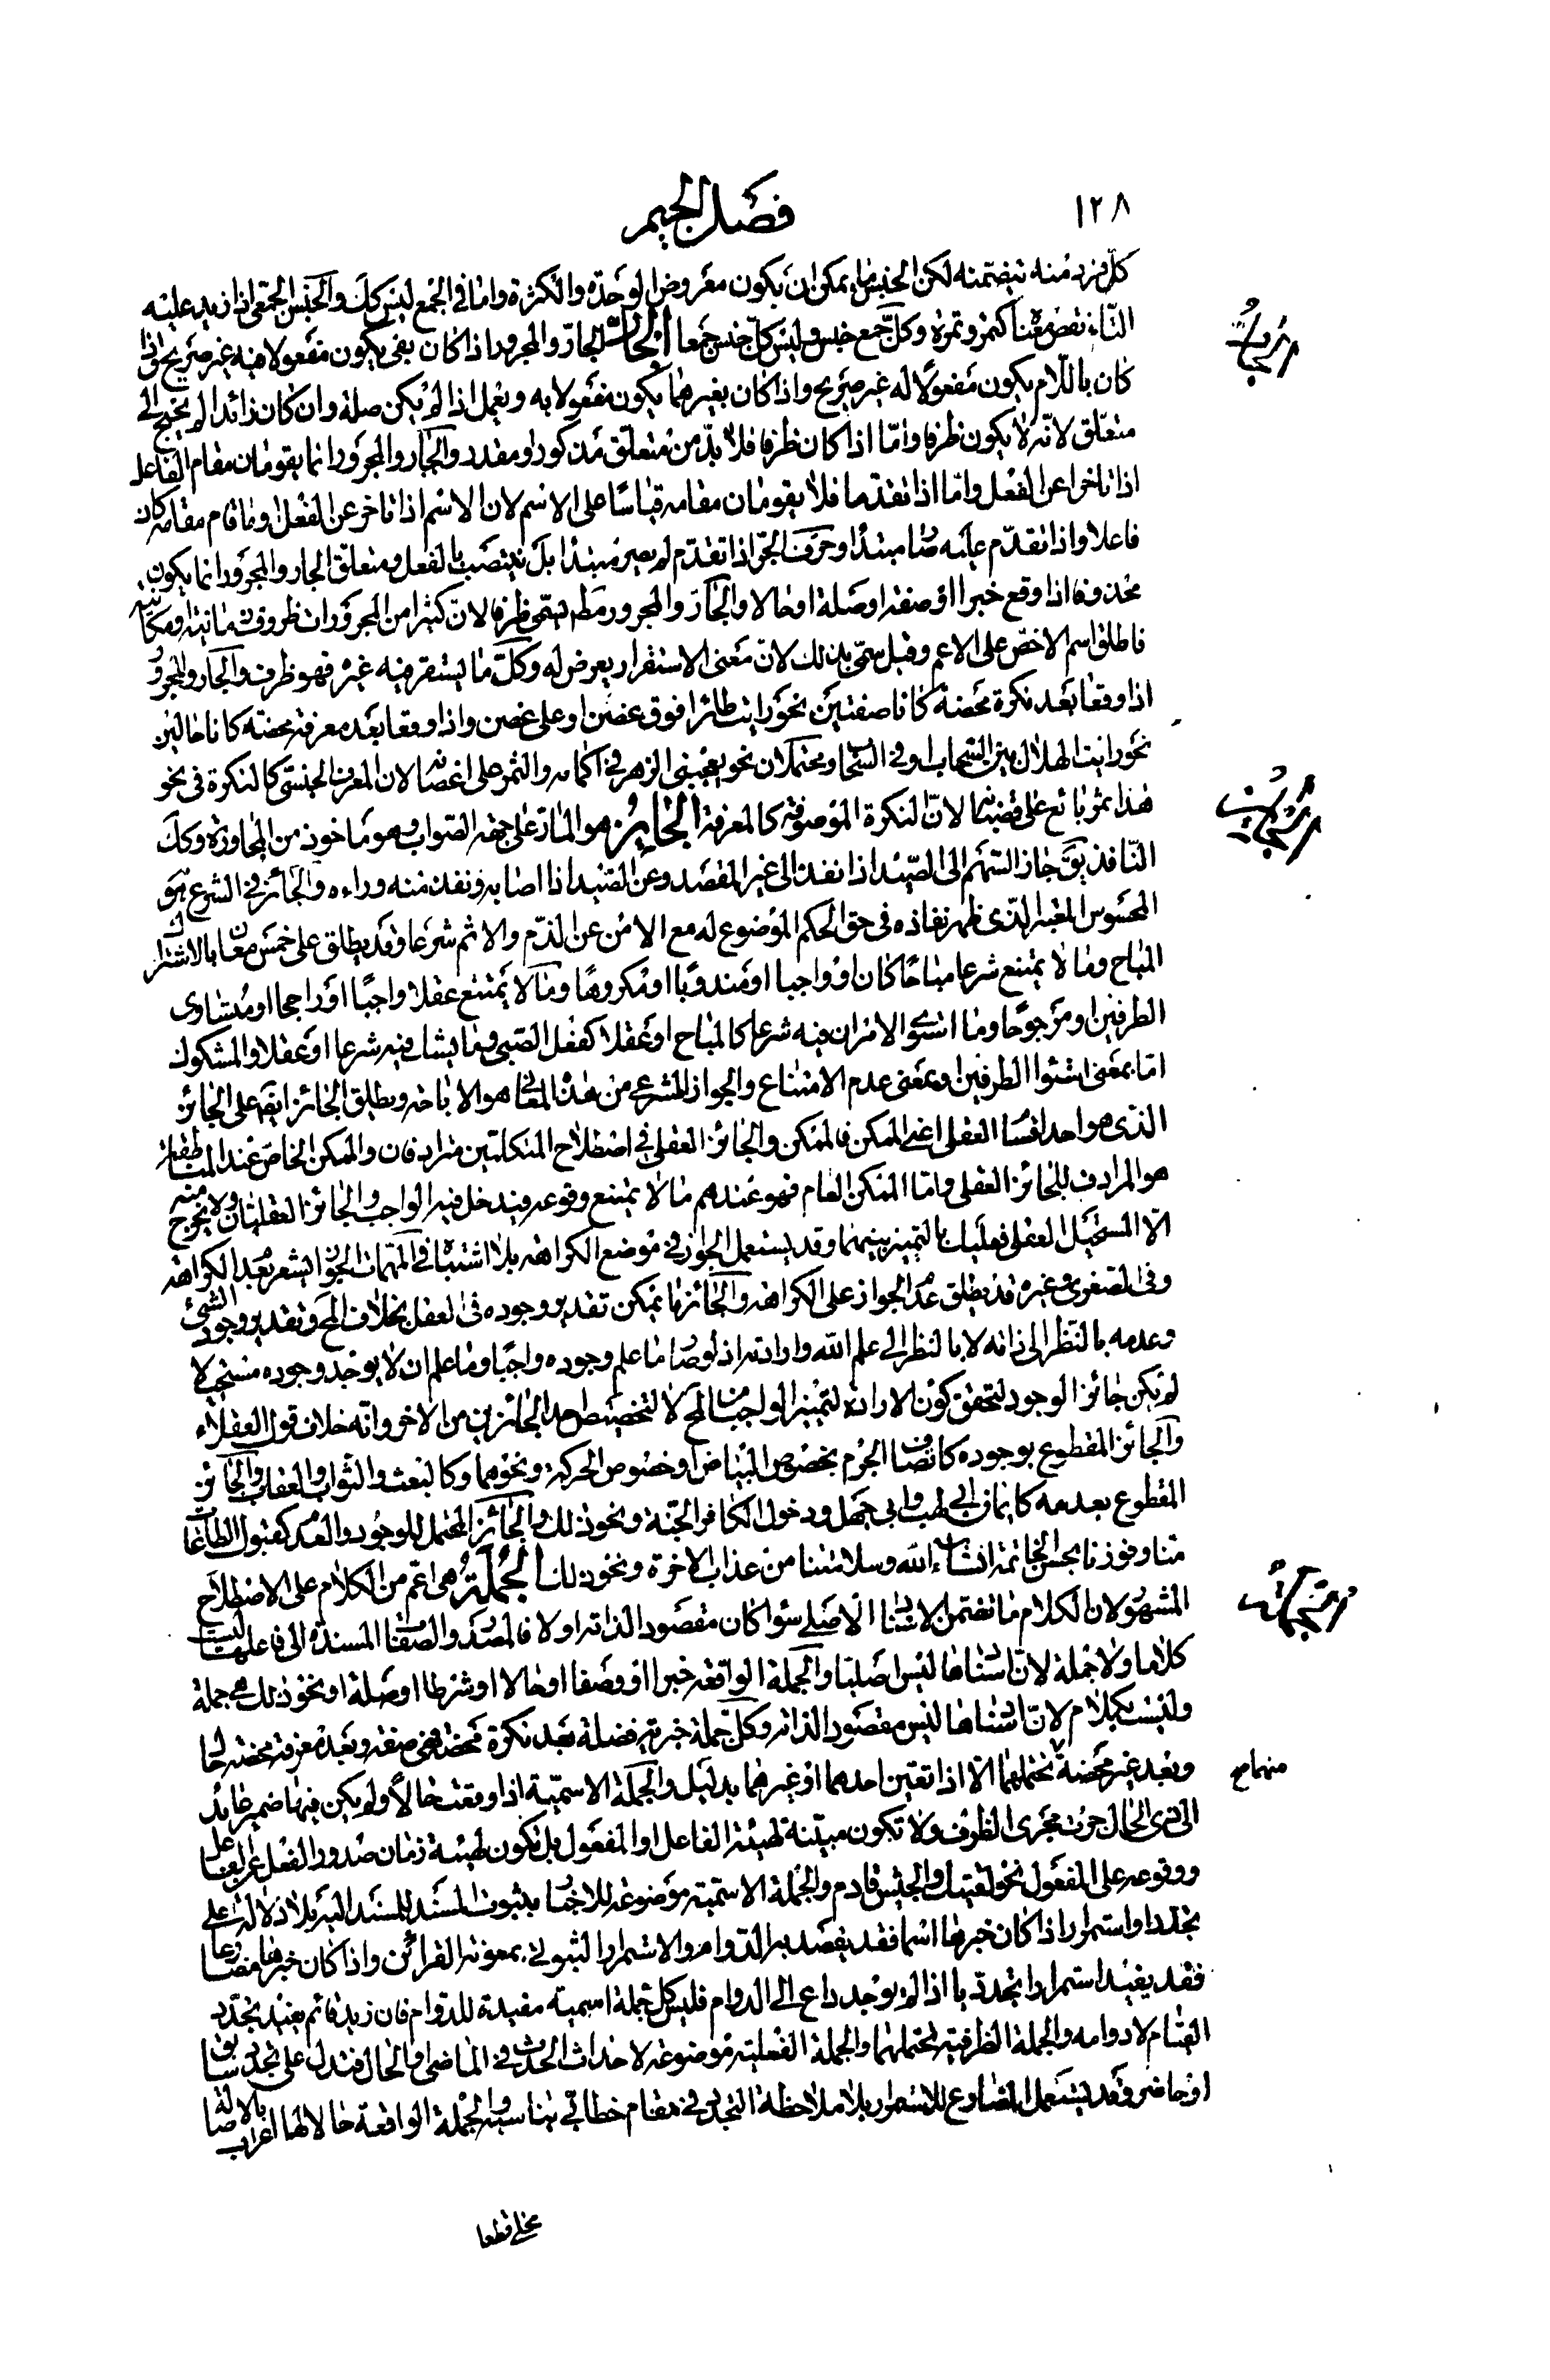 ١٢٨
فصل الجيم
كلّ فرد منه يتضمنه لكن الجنس ما يمكن ان يكون معروض الوحدة والكثرة واما في الجمع ليس كك والجنس الجمعى اذا زيد عليه
التاء نقص معناه كتمر وتمرة وكل جمع جنس وليس كلّ جنس جمعا الجارّ الجارّ والمجرور اذا كان بفى يكون مفعولا فيه غير صريح واذا
كان باللام يكون مفعولا له غير صريح واذا كان بغيرهما يكون مفعولا به ويعمل اذا لم يكن صلة وان كان زائدا لم يحتج الى
متعلّق لانّه لا يكون ظرفا وامّا اذا كان ظرفا فلا بدّ من متعلّق مذكور او مقدر والجار والمجرور انما يقومان مقام الفاعل
اذا تاخرا عن الفعل وامّا اذا تقدّما فلا يقومان مقامه قياسا على الاسم لان الاسم اذا تاخر عن الفعل او ما قام مقامه كان
فاعلا واذا تقدّم عليه صار مبتدا وحرف الجرّ اذا تقدّم لم يصر مبتدا بل ينتصب بالفعل ومتعلق الجار والمجرور انما يكون
محذوفا اذا وقع خبرا او صفة او صلة او حالا والجارّ والمجرور مطم يسمّى ظرفا لان كثيرا من المجرورات ظروف زمانية او مكانية
فاطلق اسم الاخصّ على الاعم وقيل سمّى بذلك لان معنى الاستقرار يعرض له وكلّ ما يستقر فيه غيره فهو ظرف والجار والمجرور
اذا وقعا بعد نكرة محضة كانا صفتين نحو رايت طائرا فوق غصن او على غصن واذا وقعا بعد معرفة محضة كانا حالين
نحو رايت الهلال بين السحاب او في السحاب ومحتملان نحو يعجبنى الزهر في اكمامه والثمر على اغصانه لان المعرف الجنسى كالنكرة في نحو
هذا ثمر يانع على قضبانه لانّ النكرة الموصوفة كالمعرفة الجائز هو المارّ على جهة الصواب وهو ماخوذ من المجاوزة وكك
النافذ يق جاز السهم الى الصيد اذا نفذ الى غير المقصد وعن الصيد اذا اصابه ونفذ منه وراءه والجائز في الشرع هو
المحسوس المعتبر الذى ظهر نفاذه في حق الحكم الموضوع له مع الامن عن الذم والاثم شرعا وقد يطلق على خمس معان بالاشتراك
المباح وما لا يمتنع شرعا مباحا كان او واجبا او مندوبا او مكروها وما لا يمتنع عقلا واجبا او راجحا او مساوى
الطرفين او مرجوحا وما استوى الامران فيه شرعا كالمباح او عقلا كفعل الصبى وما يشك فيه شرعا او عقلا والمشكوك
امّا بمعنى استواء الطرفين او بمعنى عدم الامتناع والجواز الشرعى من هذه المعانى هو الاباحة ويطلق الجائز ايضا على الجائز
الذى هو احد اقسام العقلى اعنى الممكن فالممكن والجائز العقلى في اصطلاح المتكلمين مترادفان والممكن الخاص عند المناطقة
هو المرادف للجائز العقلى وامّا الممكن العام فهو عندهم ما لا يمتنع وقوعه فيدخل فيه الواجب والجائز العقليان ولا يخرج منه
الّا المستحيل العقلى فعليك بالتميز بينهما وقد يستعمل الجواز في موضع الكراهة بلا اشتباه في المهمات الجواز يشعر بعدم الكراهة
وفى الصغرى وغيره قد يطلق عدم الجواز على الكراهة والجائز ما يمكن تقدير وجوده في العقل بخلاف المح وتقدير وجود الشئ
وعدمه بالنظر الى ذاته لا بالنظر الى علم الله وارادته اذ لو صار ما علم وجوده واجبا وما علم ان لا يوجد وجوده مستحيلا
لم يكن جائز الوجود لتحقق كون الارادة لتميز الواجب من المح لا لتخصيص احد الجائزين من الاخر وانّه خلاف قول العقلاء
والجائز المقطوع بوجوده كاتصاف الجرم بخصوص البياض او خصوص الحركة ونحوهما وكالبعث والثواب والعقاب والجائز
المقطوع بعدمه كايمان ابى لهب وابى جهل ودخول الكافر الجنة ونحو ذلك والجائز المحتمل للوجود والعدم كقبول الطاعات
منا وفوزنا بحسن الخاتمة انشاء الله وسلامتنا من عذاب الاخرة ونحو ذلك الجملة هى اعم من الكلام على الاصطلاح
المشهور لان الكلام ما تضمن الاسناد الاصلى سواء كان مقصودا لذاته او لا فالمصدر والصفات المسندة الى فاعلها ليست
كلاما ولا جملة لانّ اسنادها ليس اصليا والجملة الواقعة خبرا او وصفا او حالا او شرطا او صلة او نحو ذلك هى جملة
وليست بكلام لانّ اسنادها ليس مقصودا لذاته وكلّ جملة خبرية فضلة بعد نكرة محضة فهى صفة وبعد معرفة محضة حال
وبعد غير محضة تحتملهما الّا اذا تعين احدهما او غيرهما بدليل والجملة الاسمية اذا وقعت حالا ولم يكن فيها ضمير عايد
الى ذى الحال جرت مجرى الظرف ولا تكون مبيّنة لهيئة الفاعل او المفعول بل تكون لهيئة زمان صدور الفعل عن الفاعل
ووقوعه على المفعول نحو لقيتك والجيش قادم والجملة الاسمية موضوعة للاخبار بثبوت المسند للمسند اليه بلا دلالة على
تجدد او استمرار اذا كان خبرها اسما فقد يقصد به الدّوام والاستمرار الثبوتى بمعونة القرائن واذا كان خبرها مضارعا
فقد يفيد استمرارا تجدديا اذا لم يوجد داع الى الدوام فليس كل جملة اسمية مفيدة للدوام فان زيد قائم يفيد تجدد
القيام لا دوامه والجملة الظرفية تحتملهما والجملة الفعلية موضوعة لاحداث الحدث في الماضى او الحال فتدل على تجدد سابق
او حاضر وقد يستعمل المضارع للاستمرار بلا ملاحظة التجدد في مقام خطابى يناسبه والجملة الواقعة حالا لها اعراب بالاصالة
منها مع
محلى قطعا